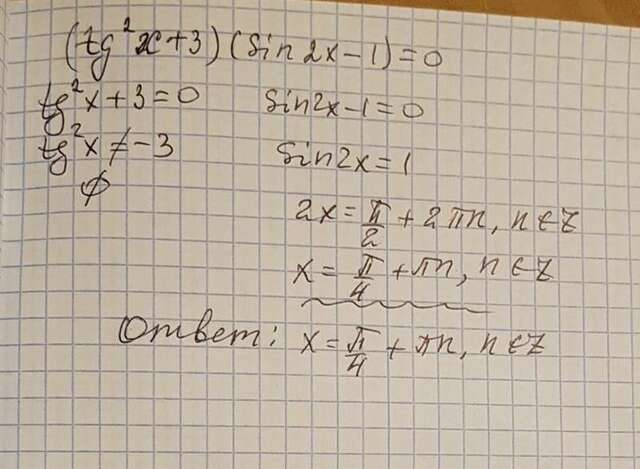 (tg²x+3)(sin2x-1)=0
tg²x+3=0 sin2x-1=0
tg²x≠-3 sin2x=1
∅
2x=π/2+2πn, n∈Z
x=π/4+πn, n∈Z
Ответ: x=π/4+πn, n∈Z